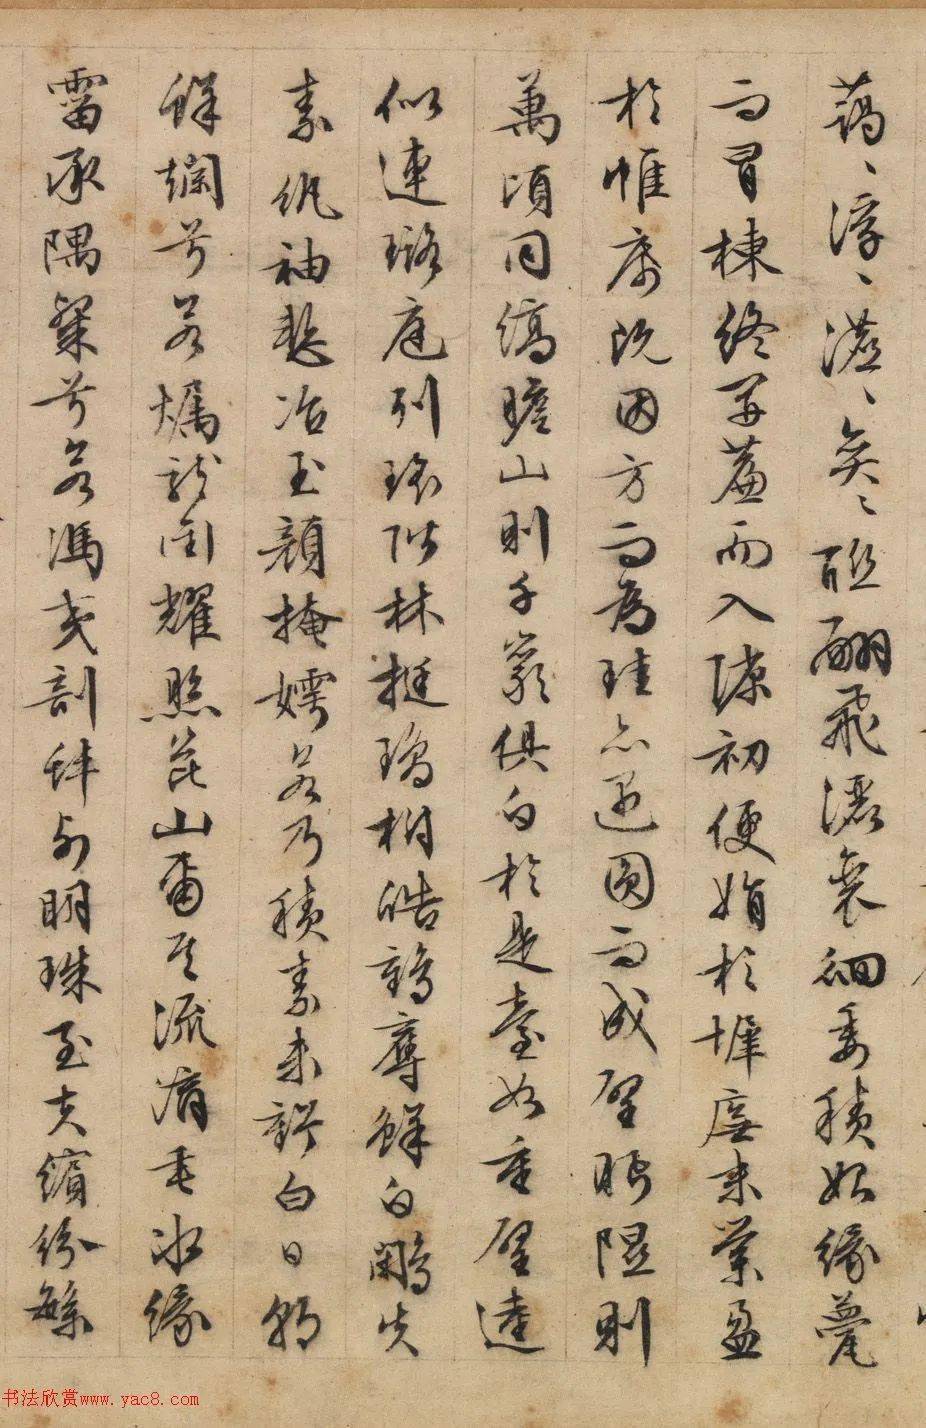 藹、浮、瀌、奕、聯翩飛灑裴徊委積始緣甍
而冒棟終開簾而入隙初便娟於墀廡末縈盈
於帷席既因方而為珪亦遇圓而成璧眄隰則
萬頃同縞瞻山則千巖俱白於是臺如重璧逵
似連璐庭列瑤階林挺瓊樹皓鶴奪鮮白鷴失
素紈袖慙冶玉顏掩嫮若乃積素未虧白日朝
鮮爛兮若燭龍銜耀照崑山爾其流滴垂冰緣
霤承隅粲兮若馮夷剖蚌列明珠至夫繽紛繁
书法欣赏www.yac8.com